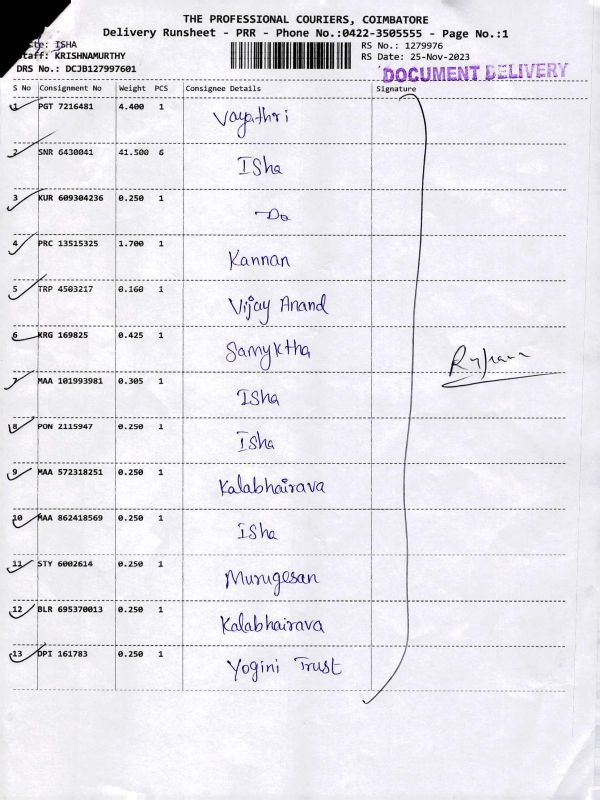 THE PROFESSIONAL COURIERS, COIMBATORE
Delivery Runsheet - PRR - Phone No.:0422-3505555 - Page No.:1
ISHA RS No.: 1279976
Staff: KRISHNAMURTHY RS Date: 25-Nov-2023
DRS No.: DCJB127997601 DOCUMENT DELIVERY
S No Consignment No Weight PCS Consignee Details Signature
1 PGT 7216481 4.400 1 Vayathri
2 SNR 6430041 41.500 6 ISha
3 KUR 609304236 0.250 1 Do
4 PRC 13515325 1.700 1 Kannan
5 TRP 4503217 0.160 1 Vijay Anand
6 KRG 169825 0.425 1 Samyktha
7 MAA 101993981 0.305 1 ISha
8 PON 2115947 0.250 1 ISha
9 MAA 572318251 0.250 1 Kalabhairava
10 MAA 862418569 0.250 1 ISha
11 STY 6002614 0.250 1 Murugesan
12 BLR 695370013 0.250 1 Kalabhairava
13 DPI 161783 0.250 1 Yogini Trust